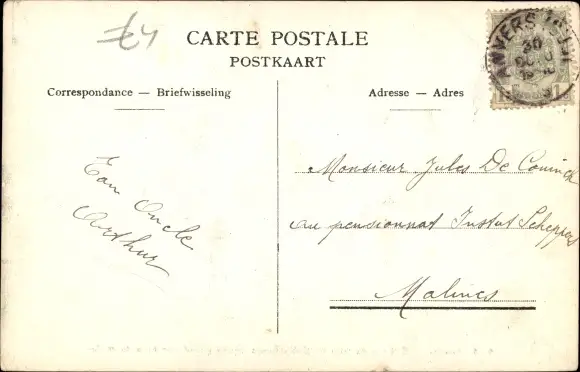 CARTE POSTALE
POSTKAART
Correspondance — Briefwisseling
Adresse — Adres
ANVERS
30
Monsieur Jules De Coninck
au pensionnat Institut Scheppers
Malines
Ton Oncle
Arthur